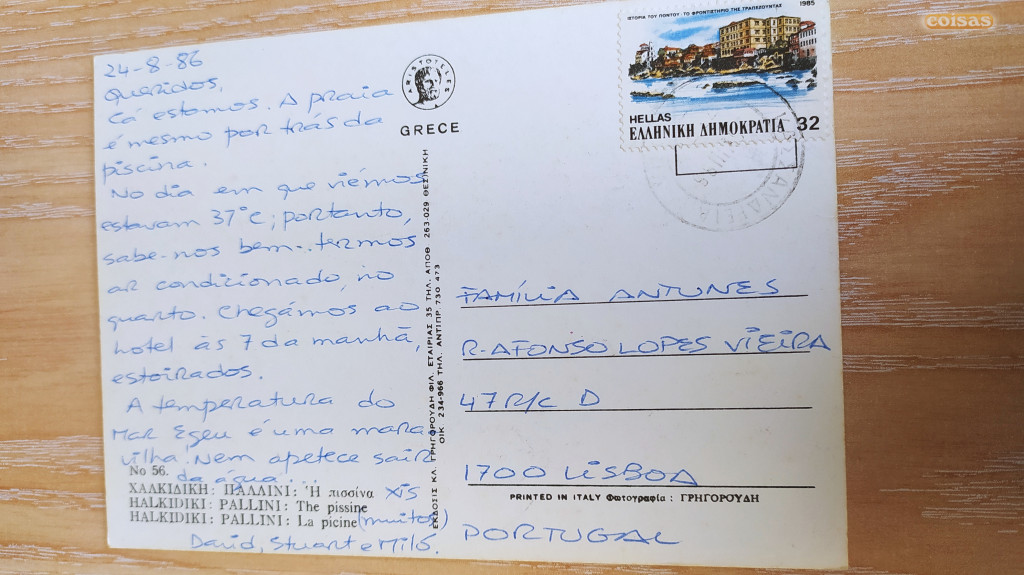 coisas
24-8-86
Queridos,
Cá estamos. A praia
é mesmo por trás da
piscina.
No dia em que viémos
estavam 37°C; portanto,
sabe-nos bem termos
ar condicionado, no
quarto. Chegámos ao
hotel às 7 da manhã,
estoirados.
A temperatura do
Mar Egeu é uma mara
vilha! Nem apetece sair
da água...
Xis
(muitos)
David, Stuart e Miló.
No 56.
ΧΑΛΚΙΔΙΚΗ: ΠΑΛΛΙΝΙ: Ἡ πισσίνα
HALKIDIKI: PALLINI: The pissine
HALKIDIKI: PALLINI: La picine
ARISTOTELES
GRECE
ΕΚΔΟΣΙΣ ΚΛ. ΓΡΗΓΟΡΟΥΔΗ ΦΙΛ. ΕΤΑΙΡΙΑΣ 35 ΤΗΛ. ΑΠΟΘ 263-029 ΘΕΣ/ΝΙΚΗ
ΟΙΚ 234-966 ΤΗΛ. ΑΝΤΙΠΡ. 730 473
ΙΣΤΟΡΙΑ ΤΟΥ ΠΟΝΤΟΥ· ΤΟ ΦΡΟΝΤΙΣΤΗΡΙΟ ΤΗΣ ΤΡΑΠΕΖΟΥΝΤΑΣ
1985
HELLAS
ΕΛΛΗΝΙΚΗ ΔΗΜΟΚΡΑΤΙΑ 32
FAMÍLIA ANTUNES
R. AFONSO LOPES VIEIRA
47 R/C D
1700 LISBOA
PRINTED IN ITALY Φωτογραφία: ΓΡΗΓΟΡΟΥΔΗ
PORTUGAL